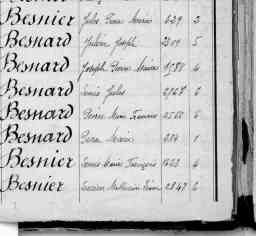 Besnier Jules Pierre Marie 629 2
Besnard Julien Joseph 2309 5
Besnard Joseph Pierre Marie 1788 4
Besnard Louis Jules 6
Besnard Pierre Marie François 6
Besnard Pierre Marie 1
Besnier Louis Marie François 1603 4
Besnier Mathurin 2847 6